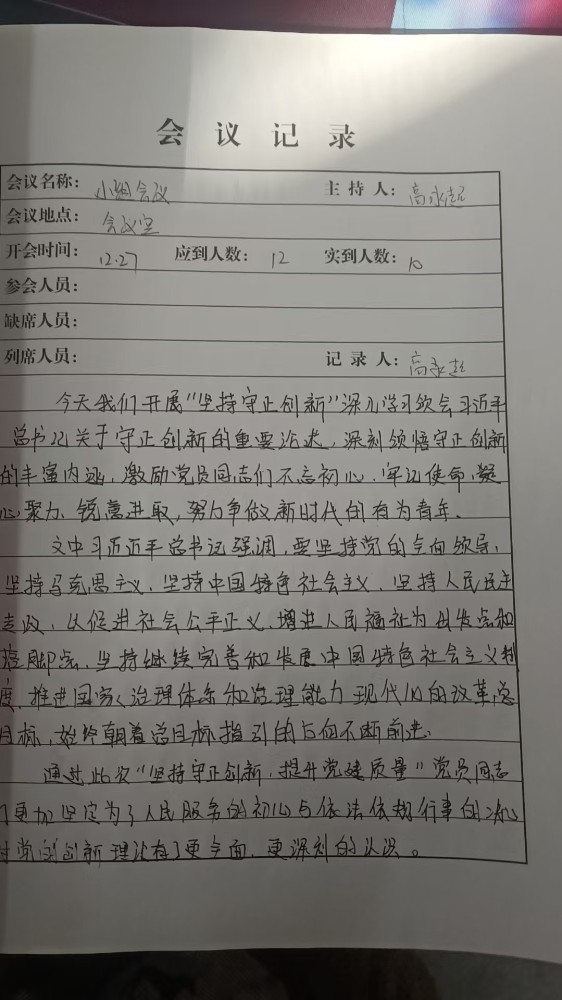 会议记录
会议名称：小组会议 主持人：高永超
会议地点：会议室
开会时间：12.27 应到人数：12 实到人数：10
参会人员：
缺席人员：
列席人员： 记录人：高永超
今天我们开展“坚持守正创新”深入学习领会习近平
总书记关于守正创新的重要论述，深刻领悟守正创新
的丰富内涵，激励党员同志们不忘初心、牢记使命、凝
心聚力、锐意进取，努力争做新时代的有为青年。
文中习近平总书记强调，要坚持党的全面领导，
坚持马克思主义、坚持中国特色社会主义、坚持人民民主
专政，以促进社会公平正义、增进人民福祉为出发点和
落脚点，坚持继续完善和发展中国特色社会主义制
度、推进国家治理体系和治理能力现代化的改革总
目标，始终朝着总目标指引的方向不断前进。
通过此次“坚持守正创新，提升党建质量”党员同志
们更加坚定为了人民服务的初心与依法依规行事的决心
对党的创新理论有了更全面、更深刻的认识。